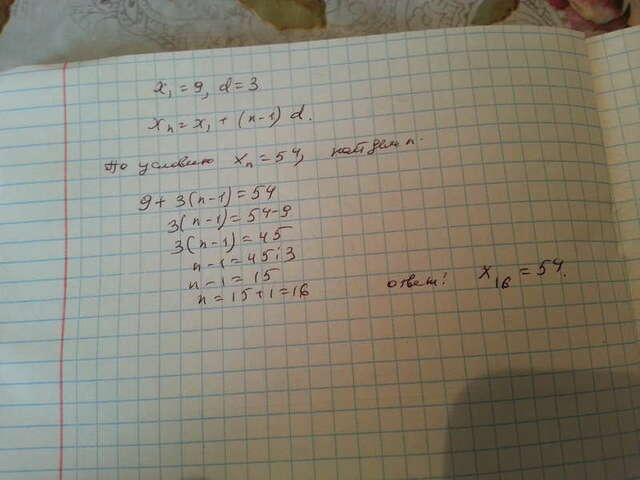 x₁ = 9, d = 3
xₙ = x₁ + (n-1) d.
По условию xₙ = 54, найдем n.
9 + 3(n-1) = 54
3(n-1) = 54-9
3(n-1) = 45
n-1 = 45:3
n-1 = 15
n = 15+1 = 16
ответ: x₁₆ = 54.